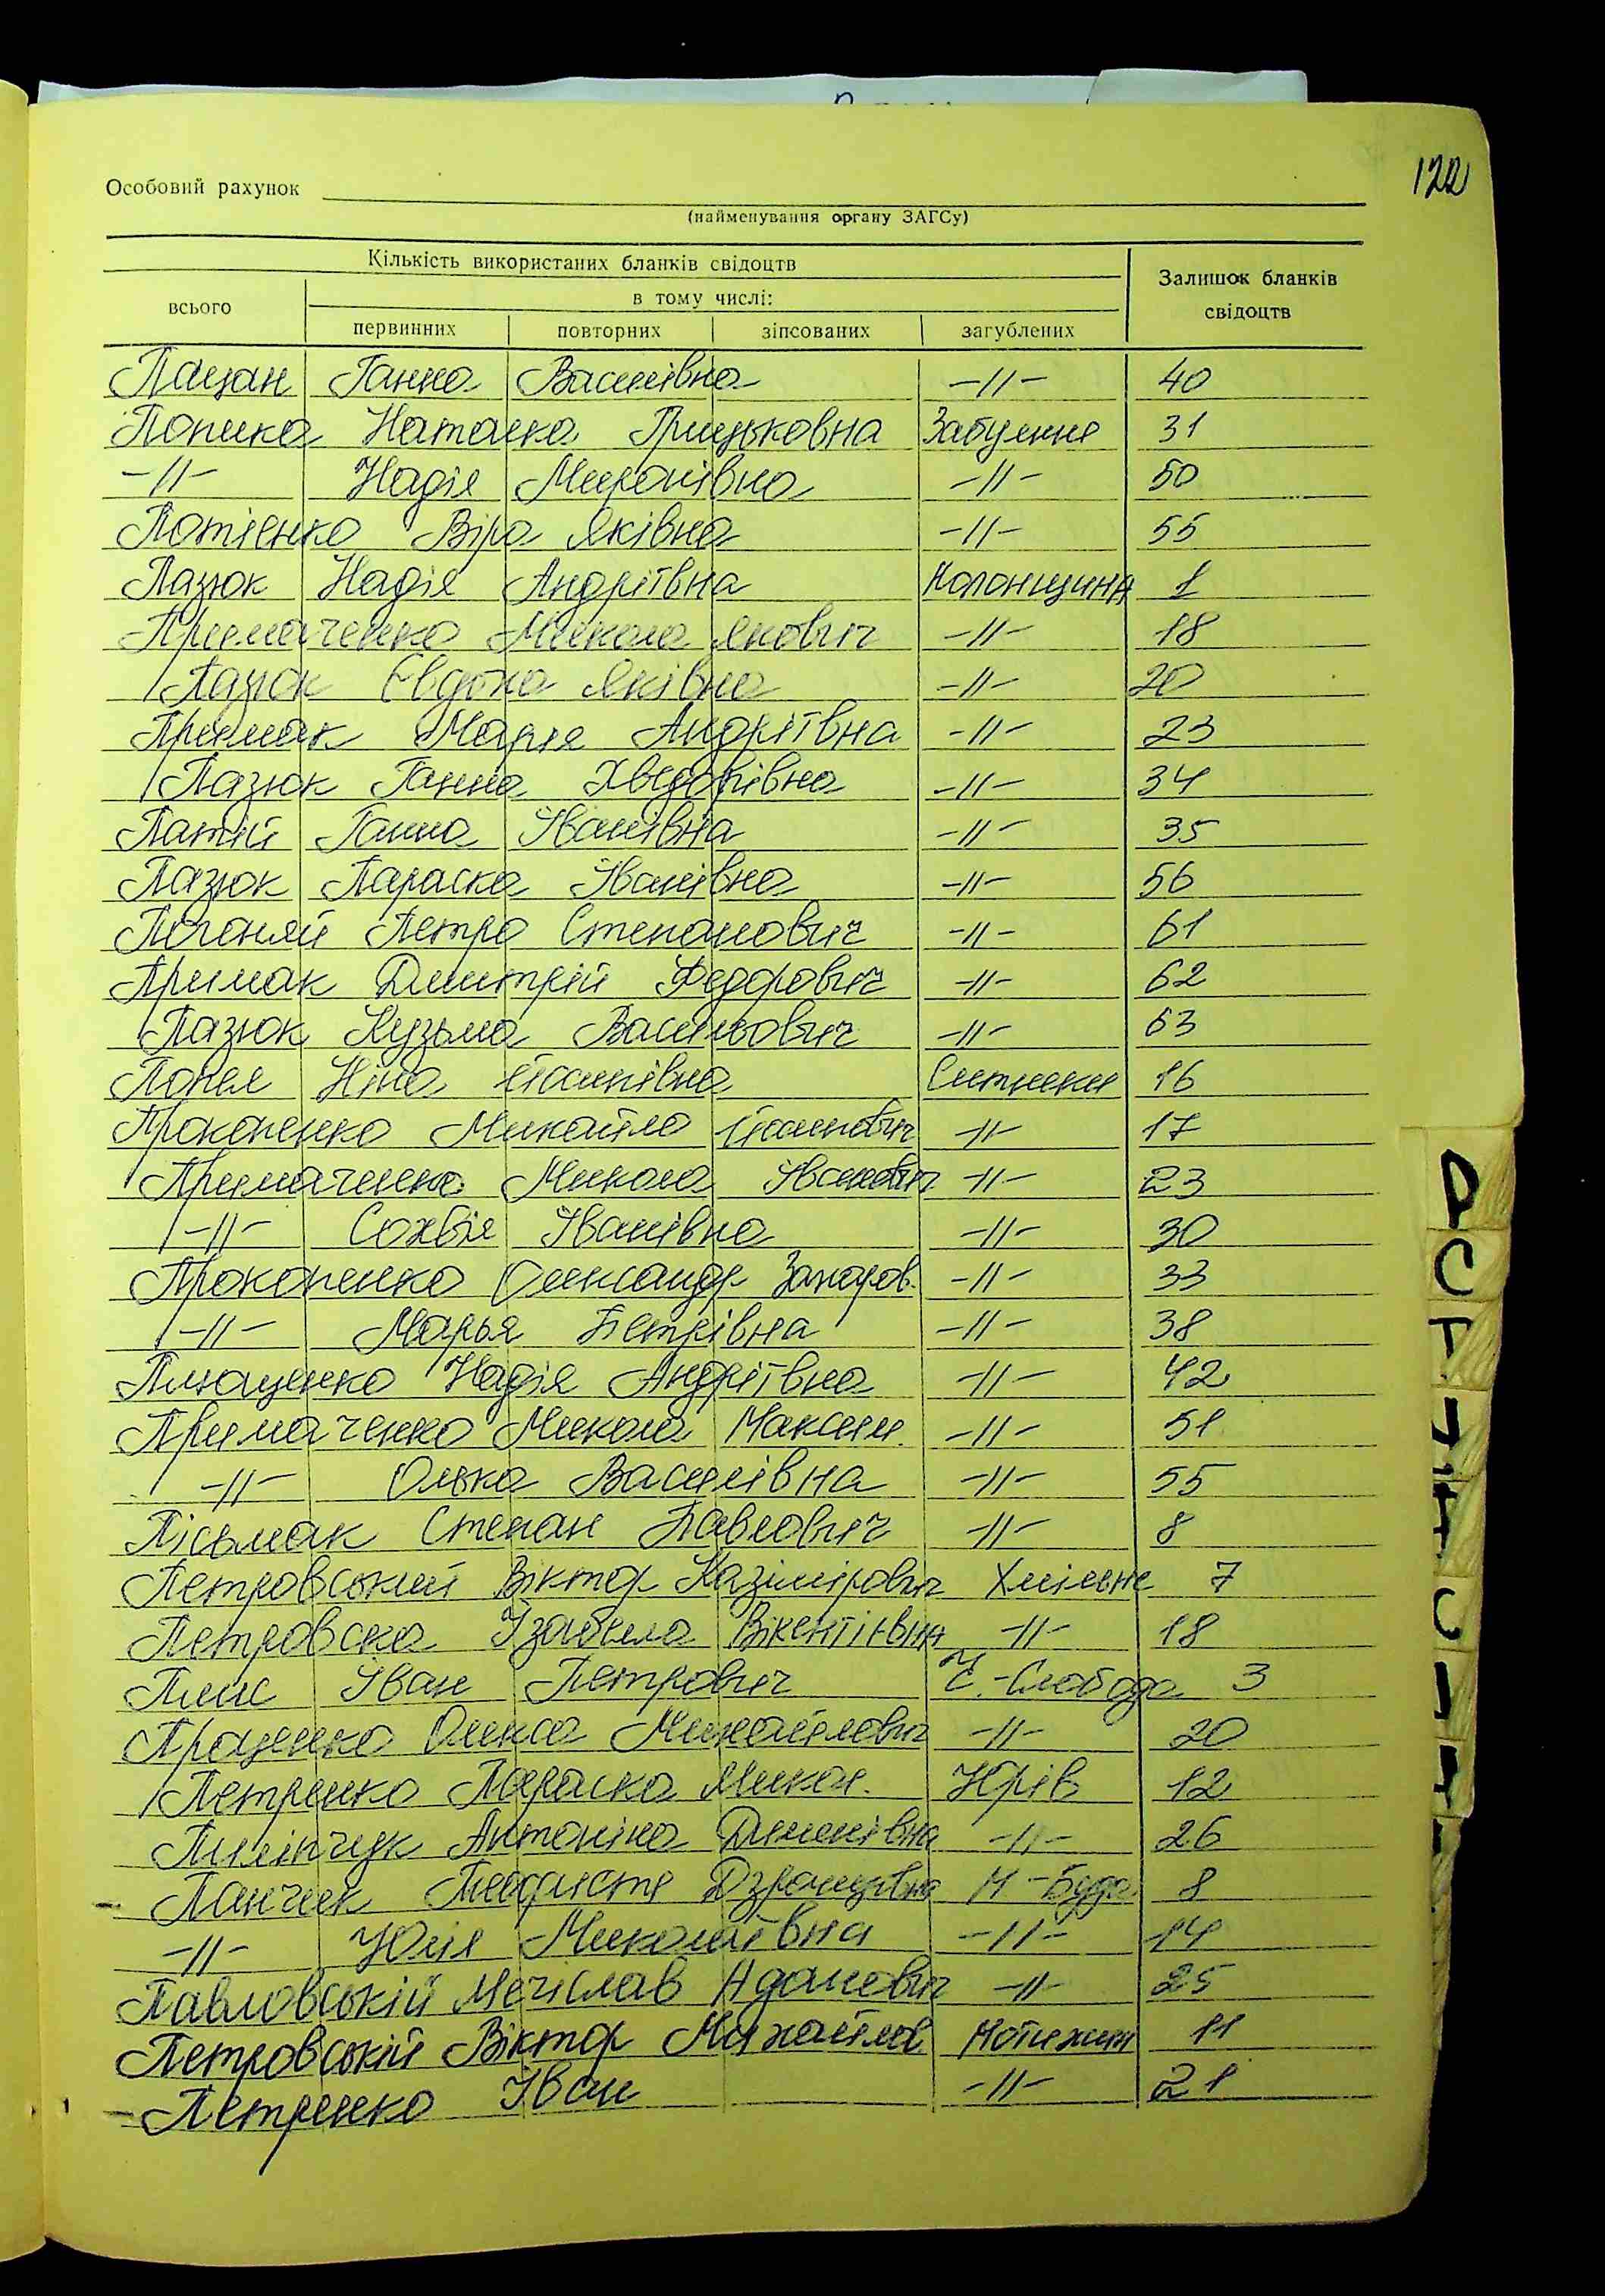 122
Особовий рахунок
(найменування органу ЗАГСу)
Кількість використаних бланків свідоцтв
Залишок бланків свідоцтв
всього
в тому числі:
первинних повторних зіпсованих загублених
Пацан Ганна Василівна -//- 40
Наталка Грицьковна Забуяння 31
-//- Надія Миронівна -//- 50
Потієнко Віра Яківна -//- 55
Пазюк Надія Андріївна Колонщина 1
Примаченко Микола Якович -//- 18
Пазюк Євдоха Яківна -//- 20
Примак Марія Андріївна -//- 23
Пазюк Ганна Хведорівна -//- 34
Патій Ганна Іванівна -//- 35
Пазюк Параска Іванівна -//- 56
Петро Степанович -//- 61
Примак Дмитрій Федорович -//- 62
Пазюк Кузьма Васильович -//- 63
Попел Ніна Йосипівна Ситняки 16
Прокопенко Михайло Йосипович -//- 17
Примаченко Микола Іванович -//- 23
-//- Сохвія Іванівна -//- 30
Прокопенко Олександр Захаров. -//- 33
-//- Марья Петрівна -//- 38
Плющенко Надія Андріївна -//- 42
Примаченко Микола Максим. -//- 51
-//- Олька Василівна -//- 55
Пісьмак Степан Павлович -//- 8
Петровський Віктор Казімірович Хмільне 7
Петровска Ізабела Вікентіївна -//- 18
Плис Іван Петрович Ч.-Слобода 3
Проценко Олекса Михайлович -//- 20
Петренко Параска Микол. Юрів 12
Пилипчук Антоніна -//- 26
Панчук М-Буда 8
-//- Юлія Миколаївна -//- 14
Павловській Мечіслав Адамович -//- 25
Петровській Віктор Михайлов Мотижин 11
Петренко Іван -//- 21
Р
С
Т